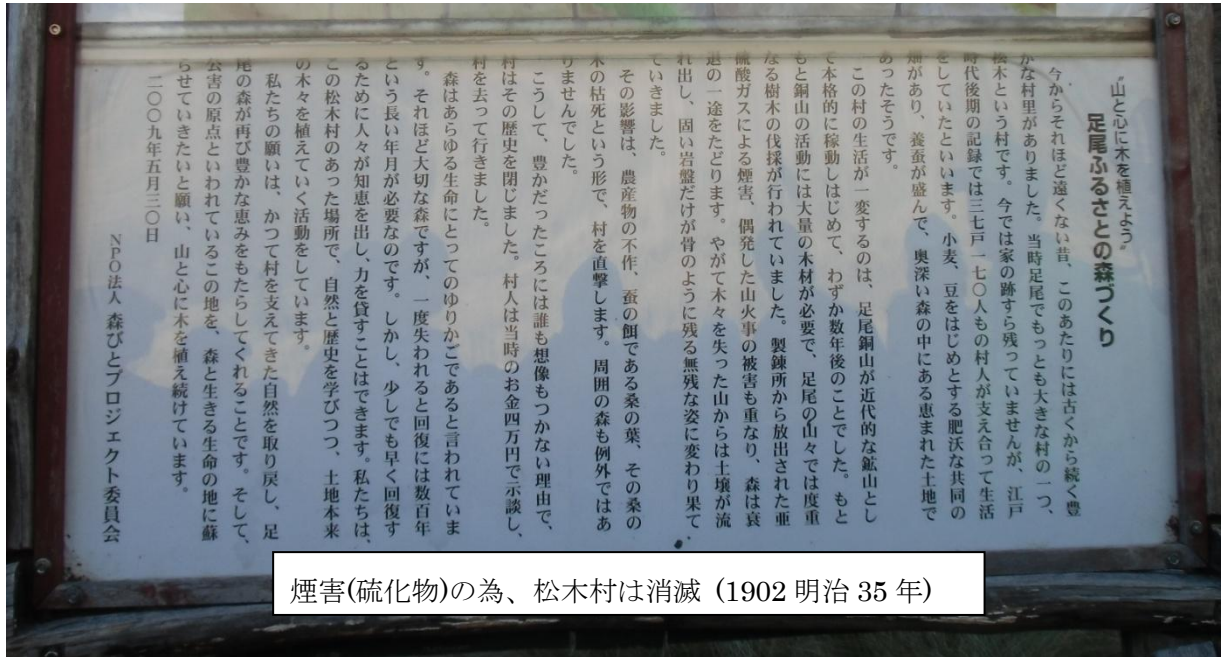 〝山と心に木を植えよう〟
足尾ふるさとの森づくり
今からそれほど遠くない昔、このあたりには古くから続く豊
かな村里がありました。当時足尾でもっとも大きな村の一つ、
松木という村です。今では家の跡すら残っていませんが、江戸
時代後期の記録では三七戸一七〇人もの村人が支え合って生活
をしていたといいます。小麦、豆をはじめとする肥沃な共同の
畑があり、養蚕が盛んで、奥深い森の中にある恵まれた土地で
あったそうです。
この村の生活が一変するのは、足尾銅山が近代的な鉱山とし
て本格的に稼動しはじめて、わずか数年後のことでした。もと
もと銅山の活動には大量の木材が必要で、足尾の山々では度重
なる樹木の伐採が行われていました。製錬所から放出された亜
硫酸ガスによる煙害、偶発した山火事の被害も重なり、森は衰
退の一途をたどります。やがて木々を失った山からは土壌が流
れ出し、固い岩盤だけが骨のように残る無残な姿に変わり果て
ていきました。
その影響は、農産物の不作、蚕の餌である桑の葉、その桑の
木の枯死という形で、村を直撃します。周囲の森も例外ではあ
りませんでした。
こうして、豊かだったころには誰も想像もつかない理由で、
村はその歴史を閉じました。村人は当時のお金四万円で示談し、
村を去って行きました。
森はあらゆる生命にとってのゆりかごであると言われていま
す。それほど大切な森ですが、一度失われると回復には数百年
という長い年月が必要なのです。しかし、少しでも早く回復す
るために人々が知恵を出し、力を貸すことはできます。私たちは、
この松木村のあった場所で、自然と歴史を学びつつ、土地本来
の木々を植えていく活動をしています。
私たちの願いは、かつて村を支えてきた自然を取り戻し、足
尾の森が再び豊かな恵みをもたらしてくれることです。そして、
公害の原点といわれているこの地を、森と生きる生命の地に蘇
らせていきたいと願い、山と心に木を植え続けています。
二〇〇九年五月三〇日
NPO法人 森びとプロジェクト委員会
煙害(硫化物)の為、松木村は消滅 (1902 明治 35 年)